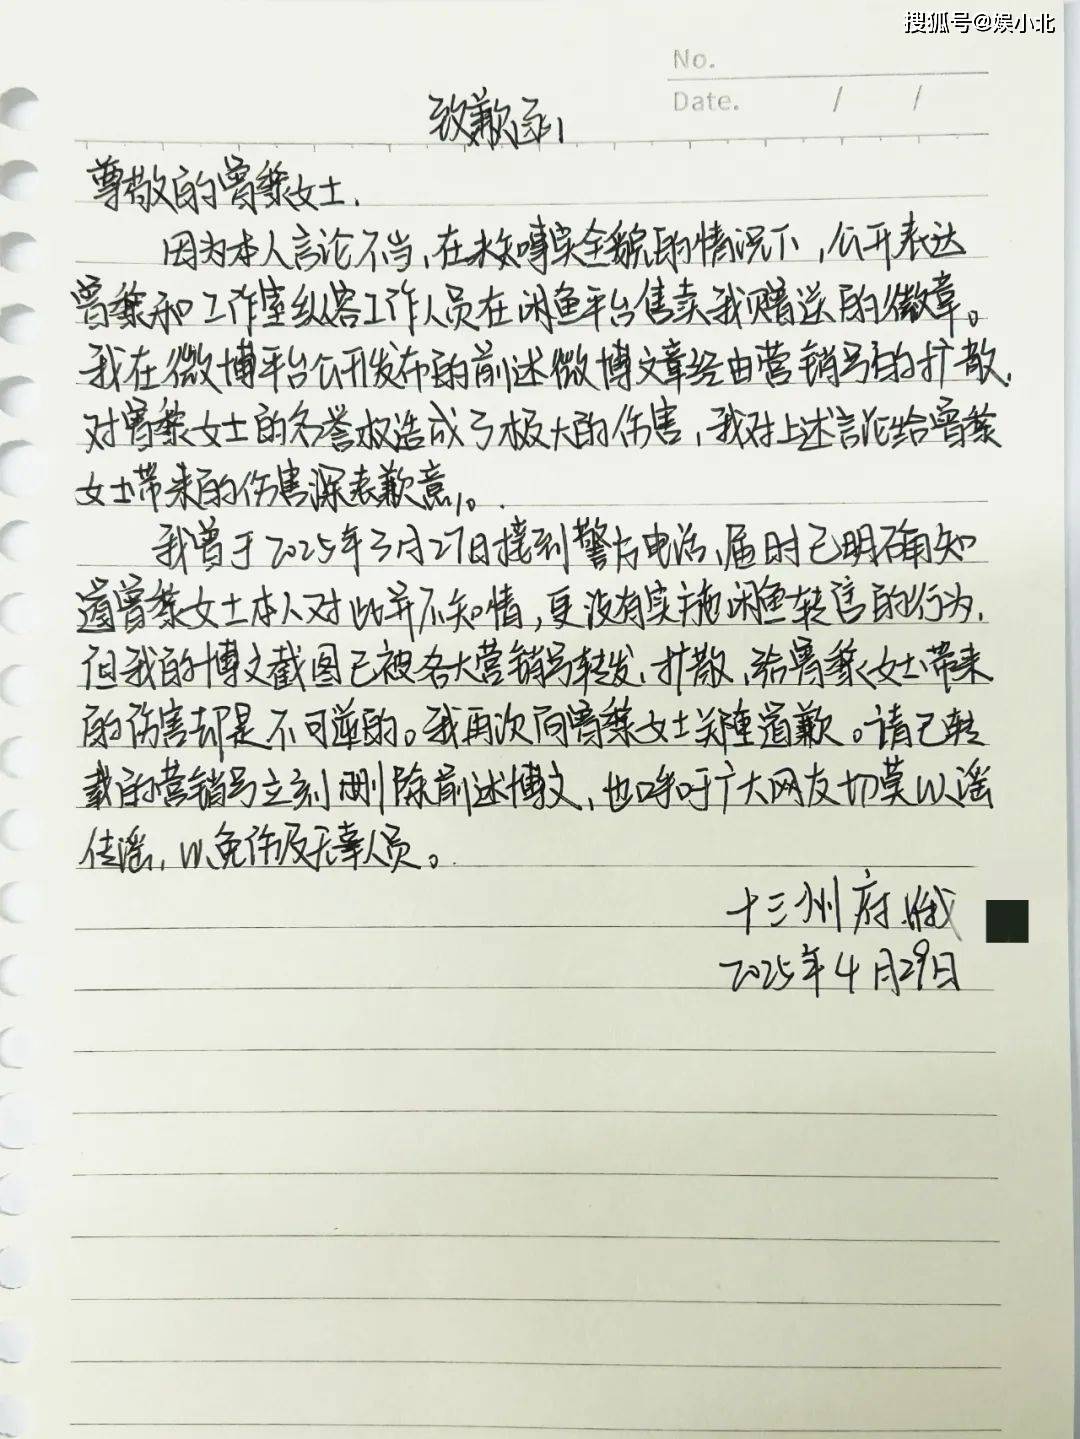 搜狐号@娱小北
No.
Date. / /
致歉函
尊敬的曾黎女士.
因为本人言论不当,在未知事实全貌的情况下,公开表达
曾黎和工作室纵容工作人员在闲鱼平台售卖我赠送的徽章。
我在微博平台公开发布的前述微博文章经由营销号的扩散,
对曾黎女士的名誉权造成了极大的伤害,我对上述言论给曾黎
女士带来的伤害深表歉意。
我曾于2025年3月27日接到警方电话,届时已明确知
道曾黎女士本人对此并不知情,更没有实施闲鱼转售的行为,
但我的博文截图已被各大营销号转发、扩散,给曾黎女士带来
的伤害却是不可逆的。我再次向曾黎女士郑重道歉。请已转
载的营销号立刻删除前述博文,也呼吁广大网友切莫以谣
传谣,以免伤及无辜人员。
十三州府
2025年4月29日